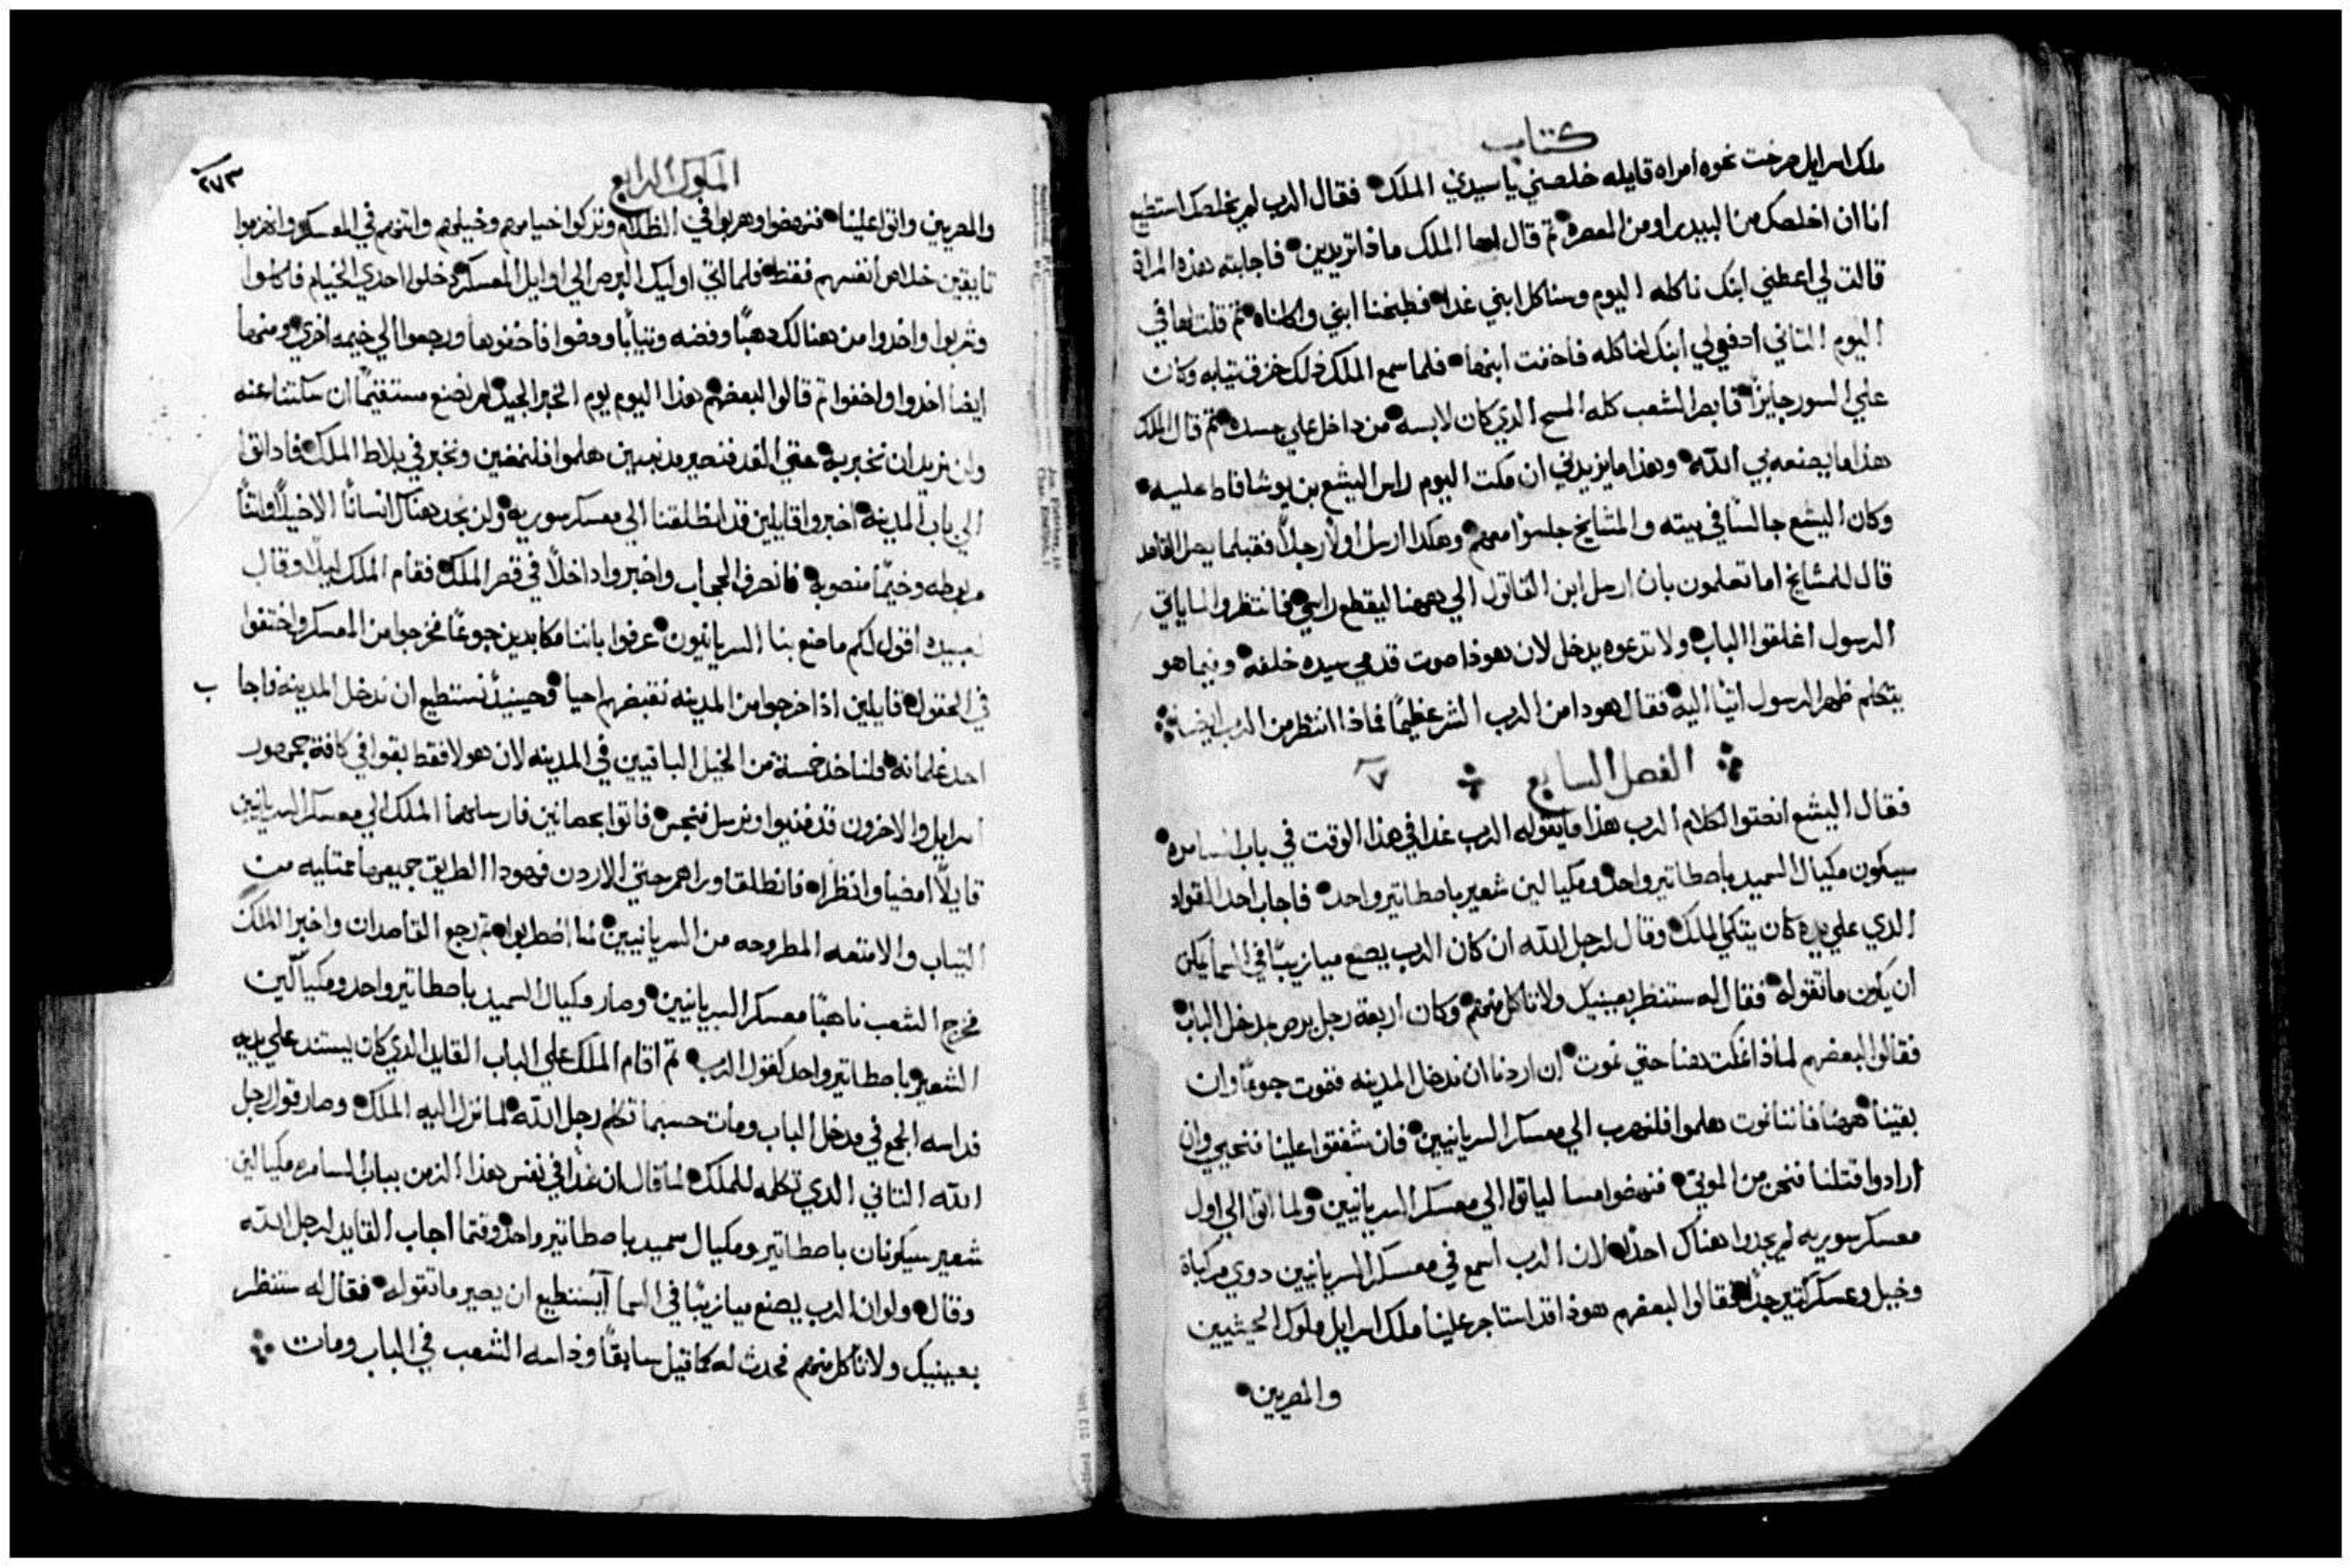 كتاب
ملك اسرايل صرخت نحوه امراه قايله خلصني يا سيدي الملك فقال الرب لم يخلصك استطيع
انا ان اخلصك من البيدر او من المعصره ثم قال لها الملك ماذا تريدين فاجابته هذه المراة
قالت لي اعطني ابنك ناكله اليوم وسناكل ابني غدا فطبخنا ابني واكلناه ثم قلت لها في
اليوم التاني ادفعي لي ابنك لناكله فاخفت ابنها فلما سمع الملك ذلك خرق تيابه وكان
علي السور جايزا فابصر الشعب كله المسح الدي كان لابسه من داخل علي جسده ثم قال الملك
هذا ما يصنعه بي الله وهذا ما يزيدني ان مكت اليوم راس اليشع بن يوشافاط عليه
وكان اليشع جالسًا في بيته والمشايخ جلسوا معهم وهكدا ارسل اولا رجلاً فقبلما يصل القاصد
قال للمشايخ اما تعلمون بان ارسل ابن القاتول الي ههنا ليقطع راسي فانتظروا لما ياتي
الرسول اغلقوا الباب ولا تدعوه يدخل لان هوذا صوت قدمي سيده خلفه وفيما هو
يتكلم ظهر الرسول اتيا اليه فقال هودا من الرب الشر عظيمًا فماذا انتظر من الرب ايضا
الفصل السابع ٧
فقال اليشع انصتوا لكلام الرب هذا ما يقوله الرب غدا في هذا الوقت في باب السامره
سيكون مكيال السميد باصطاتير واحد ومكيالين شعير باصطاتير واحد فاجاب احد القواد
الدي علي يده كان يتكي الملك وقال لرجل الله ان كان الرب يصنع ميازيبًا في السما يمكن
ان يكون ما تقوله فقال له ستنظر بعينيك ولا تاكل منهم وكان اربعة رجل برص بمدخل الباب
فقالوا لبعضهم لماذا نمكت هنا حتي نموت ان اردنا ان ندخل المدينه فنموت جوعًا وان
بقينا ههنا فاننا نموت هلموا فلنهرب الي معسكر السريانيين فان شفقوا علينا فنحيي وان
ارادوا قتلنا فنحن من الموتي فنهضوا مسا لياتوا الي معسكر السريانيين ولما اتوا الي اول
معسكر سوريه لم يجدوا هناك احدًا لان الرب اسمع في معسكر السريانيين دوي مركباة
وخيل وعسكر كتير جدًا فقالوا لبعضهم هوذا قد استاجر علينا ملك اسرايل ملوك الحيثيين
والمصريين
الملوك الرابع
٢٧٣
والمصريين واتوا علينا فنهضوا وهربوا في الظلام وتركوا خيامهم وخيلهم واتنهم في المعسكر وانهزموا
تايقين خلاص انفسهم فقط فلما اتي اوليك البرص الي اوايل المعسكر دخلوا احدي الخيام فاكلوا
وشربوا واخدوا من هنالك دهبًا وفضه وتيابًا ومضوا فاخفوها ورجعوا الي خيمه اخري ومنها
ايضا اخدوا واخفوا تم قالوا لبعضهم هذا اليوم يوم الخبر الجيد لم نصنع مستقيمًا ان سكتنا عنه
ولن نريد ان نخبر به حتي الغد فنصير مذنبين هلموا فلنمضين ونخبر في بلاط الملك فاد اتوا
الي باب المدينه اخبروا قايلين قد انطلقنا الي معسكر سوريه ولن نجد هناك انسانًا الا خيلاً واتنًا
مربوطه وخيمًا منصوبه فانصرف الحجاب واخبروا داخلاً في قصر الملك فقام الملك ليلاً وقال
لعبيده اقول لكم ما صنع بنا السريانيون عرفوا باننا مكابدين جوعًا فخرجوا من المعسكر واختفوا
في الحقول قايلين اذا خرجوا من المدينه نقبضهم احيا وحينيدٍ نستطيع ان ندخل المدينه فاجا
ب
احد غلمانه فلناخذ خمسة من الخيل الباقيين في المدينه لان هولا فقط بقوا في كافة جمهور
اسرايل والاخرون قد فنيوا ونرسل فنجس فاتوا بحصانين فارسلهما الملك الي معسكر السريانيين
قايلاً امضيا وانظرا فانطلقا وراهم حتي الاردن فهودا الطريق جميعها ممتليه من
التياب والامتعه المطروحه من السريانيين لما اضطربوا تم رجع القاصدان واخبرا الملك
فخرج الشعب ناهبًا معسكر السريانيين وصار مكيال السميد باصطاتير واحد ومكيالين
الشعير باصطاتير واحد كقول الرب تم اقام الملك علي الباب القايد الدي كان يستند علي يده
فداسه الجمع في مدخل الباب ومات حسبما تكلم رجل الله لما نزل اليه الملك وصار قول رجل
الله التاني الدي تكلمه للملك لما قال ان غدًا في نفس هذا الزمن بباب السامره مكيالين
شعير سيكونان باصطاتير ومكيال سميد باصطاتير واحد وقتما اجاب القايد لرجل الله
وقال ولو ان الرب يصنع ميازيبًا في السما ايستطيع ان يصير ما تقوله فقال له ستنظر
بعينيك ولا تاكل منهم فحدث له كما قيل سابقًا وداسه الشعب في الباب ومات